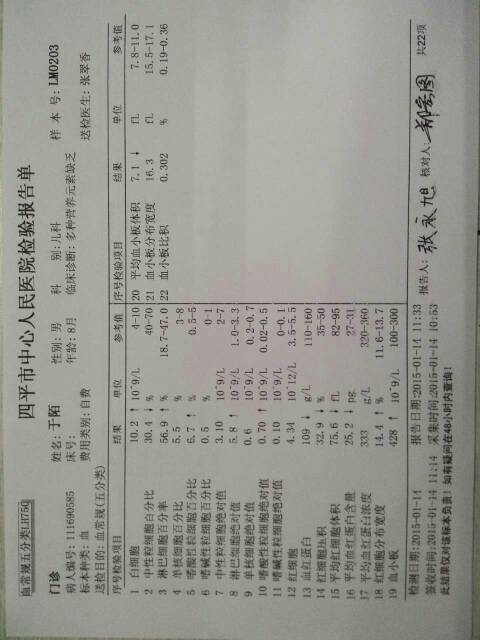 血常规五分类LH750
四平市中心人民医院检验报告单
门诊 姓名: 于陌 性别: 男 科 别: 儿科 样 本 号: LM0203
病人编号: 111690585 床号: 年龄: 8月 临床诊断: 多种营养元素缺乏 送检医生: 张翠香
标本种类: 血 费用类别: 自费
送检目的: 血常规(五分类)
序号检验项目 结果 单位 参考值 序号检验项目 结果 单位 参考值
1 白细胞 10.2 ↑ 10^9/L 4-10 20 平均血小板体积 7.1 ↓ fL 7.8-11.0
2 中性粒细胞百分比 30.4 ↓ % 40-70 21 血小板分布宽度 16.3 fL 15.5-17.1
3 淋巴细胞百分率 56.9 ↑ % 18.7-47.0 22 血小板比积 0.302 % 0.19-0.36
4 单核细胞百分比 5.5 % 3-8
5 嗜酸性粒细胞百分比 6.7 ↑ % 0.5-5
6 嗜碱性粒细胞百分比 0.5 % 0-1
7 中性粒细胞绝对值 3.10 10^9/L 2-7
8 淋巴细胞绝对值 5.8 ↑ 10^9/L 1.0-3.3
9 单核细胞绝对值 0.6 10^9/L 0.2-0.7
10 嗜酸性粒细胞绝对值 0.70 ↑ 10^9/L 0.02-0.5
11 嗜碱性粒细胞绝对值 0.10 10^9/L 0-0.1
12 红细胞 4.34 10^12/L 3.5-5.5
13 血红蛋白 109 ↓ g/L 110-160
14 红细胞压积 32.9 ↓ % 35-50
15 平均红细胞体积 75.6 ↓ fL 82-95
16 平均血红蛋白含量 25.2 ↓ pg 27-31
17 平均血红蛋白浓度 333 g/L 320-360
18 红细胞分布宽度 14.4 ↑ % 11.6-13.7
19 血小板 428 ↑ 10^9/L 100-300
检测日期:2015-01-14 报告日期:2015-01-14 11:33 报告人: 张永旭 核对人: 共22项
签收时间:2015-01-14 11:14 采集时间:2015-01-14 10:53
此结果仅对该标本负责！如有疑问在48小时内查询！